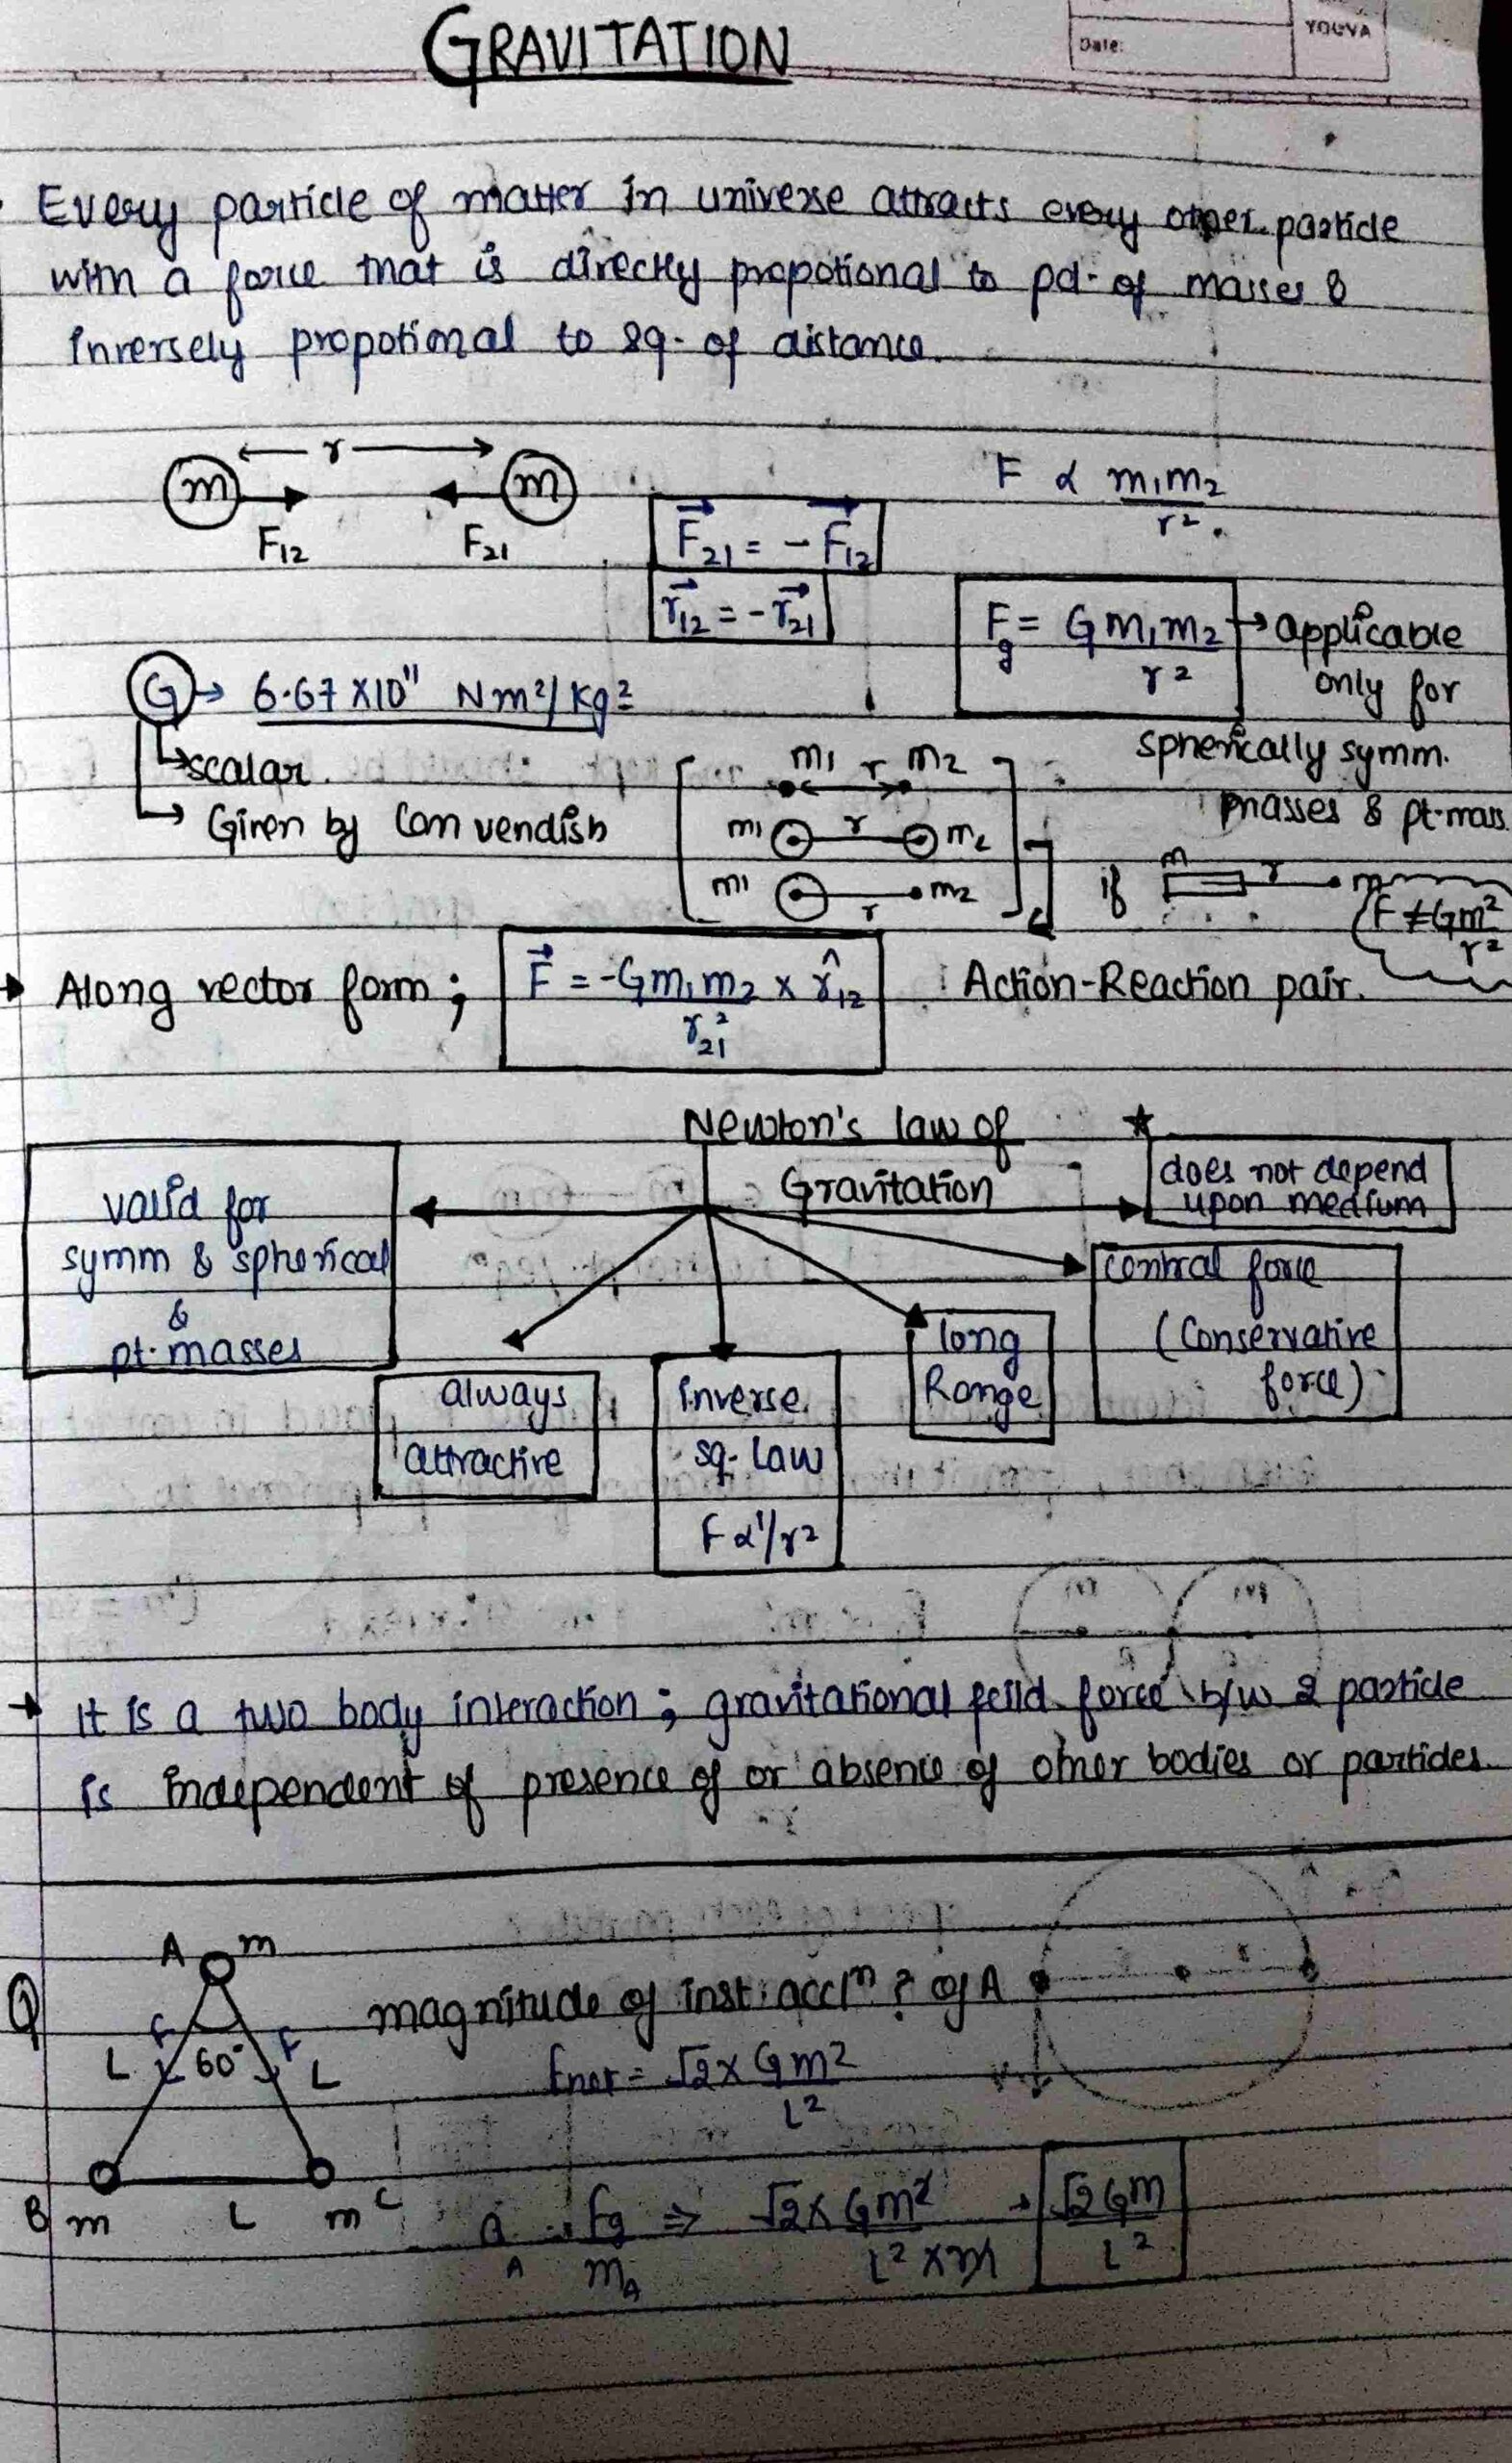 GRAVITATION
YOUVA
Date:
Every particle of matter in universe attracts every other particle
with a force that is directly propotional to pd. of masses &
inversely propotional to sq. of distance.
r
m m
F12 F21
F ∝ m1m2
r²
F21 = - F12
r12 = - r21
Fg = G m1m2 → applicable
r²
only for
spherically symm.
masses & pt. mass
G → 6.67 X10¹¹ Nm²/Kg²
→ scalar.
→ Given by Comvendish
m1 r m2
m1 r m2
m1 r m2
if m r m
F ≠ Gm²
r²
→ Along vector form ; F = -Gm1m2 x r̂12
r21²
Action-Reaction pair.
Newton's law of
Gravitation
valid for
symm & spherical
&
pt. masses
always
attractive
inverse
sq. law
F ∝ 1/r²
long
Range
central force
(Conservative
force)
does not depend
upon medium
→ It is a two body interaction ; gravitational feild force b/w 2 particle
is independent of presence of or absence of other bodies or particles.
Q
A m
F F
L 60° L
B m L m C
magnitude of inst. accl^n ? of A
Fnet = √2 x Gm²
L²
a_A = Fg ⇒ √2 x Gm² → √2 Gm
m_A L² x m L²